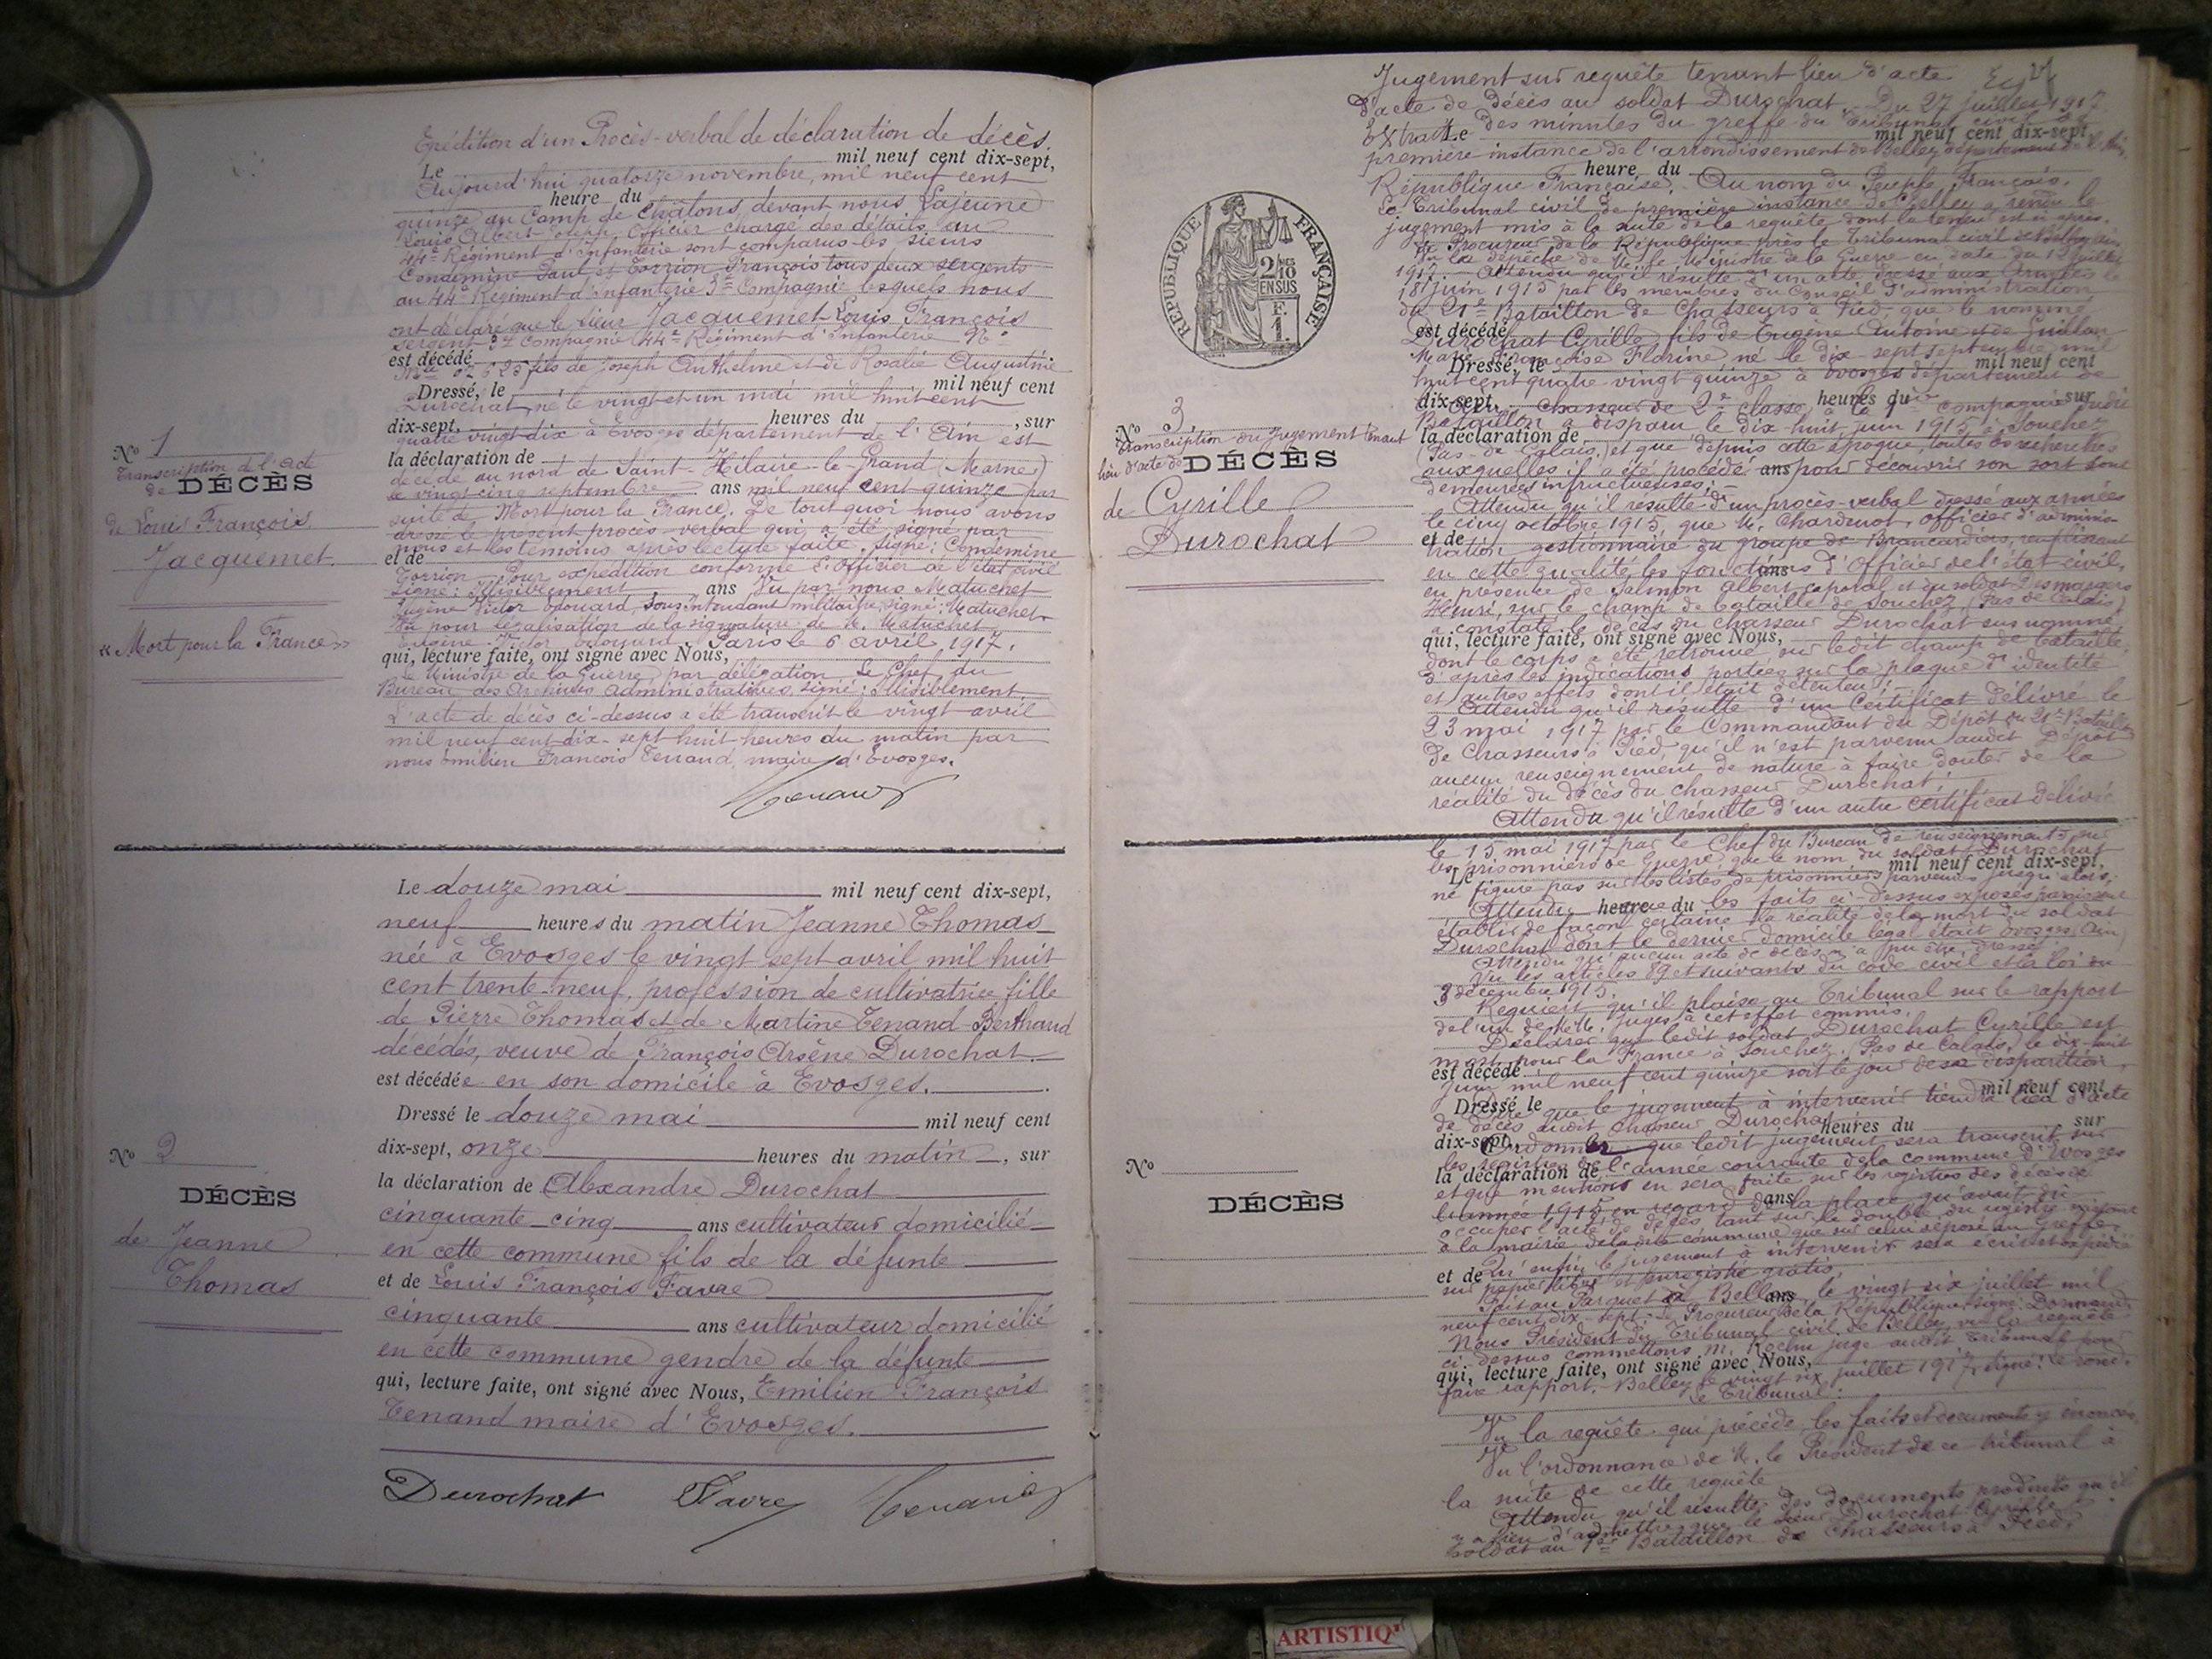 Expédition d'un Procès-verbal de déclaration de décès.
Le mil neuf cent dix-sept,
Aujourd'hui quatorze novembre, mil neuf cent
heure du
quinze au Camp de Châlons devant nous Lajeune
Louis Albert Joseph, Officier chargé des détails au
44e Régiment d'Infanterie sont comparus les sieurs
Condemine Paul et Torrion François tous deux sergents
au 44e Régiment d'Infanterie 3e Compagnie lesquels nous
ont déclaré que le sieur Jacquemet Louis François
sergent 3e Compagnie 44e Régiment d'Infanterie No
est décédé
Mle 02625 fils de Joseph Anthelme et de Rosalie Augustine
Dressé, le , mil neuf cent
Durochat, né le vingt et un mai mil huit cent
dix-sept, heures du , sur
quatre vingt dix à Evosges département de l'Ain est
la déclaration de
décédé au nord de Saint-Hilaire-le-Grand (Marne)
le vingt cinq septembre ans mil neuf cent quinze par
suite de Mort pour la France. De tout quoi nous avons
dressé le présent procès-verbal qui a été signé par
nous et les témoins après lecture faite. Signé: Condemine
et de
Torrion. Pour expédition conforme l'Officier de l'état civil
signé: Illisiblement ans Vu par nous Matuchet
Eugène Victor Edouard, Sous Intendant militaire, signé: Matuchet
Vu pour légalisation de la signature de M. Matuchet
Eugène Victor Edouard. Paris le 6 avril 1917.
qui, lecture faite, ont signé avec Nous,
le Ministre de la Guerre, par délégation Le Chef du
Bureau des Archives Administratives, signé: Illisiblement.
L'acte de décès ci-dessus a été transcrit le vingt avril
mil neuf cent dix-sept huit heures du matin par
nous Emilien François Tenand, maire d'Evosges.
Tenand
No 1
Transcription de l'acte
de DÉCÈS
de Louis François
Jacquemet
« Mort pour la France »
Le douze mai mil neuf cent dix-sept,
neuf heures du matin Jeanne Thomas
née à Evosges le vingt sept avril mil huit
cent trente-neuf, profession de cultivatrice fille
de Pierre Thomas et de Martine Tenand-Berthaud
décédés, veuve de François Arsène Durochat.
est décédée en son domicile à Evosges.
Dressé le douze mai mil neuf cent
dix-sept, onze heures du matin, sur
la déclaration de Alexandre Durochat
cinquante-cinq ans cultivateur domicilié
en cette commune fils de la défunte
et de Louis François Favre
cinquante ans cultivateur domicilié
en cette commune gendre de la défunte
qui, lecture faite, ont signé avec Nous, Emilien François
Tenand maire d'Evosges.
Durochat Favre Tenand
No 2
DÉCÈS
de Jeanne
Thomas
Jugement sur requête tenant lieu d'acte
d'acte de décès au soldat Durochat. Du 27 juillet 1917
Extrait des minutes du greffe du Tribunal civil de
Le mil neuf cent dix-sept,
première instance de l'arrondissement de Belley département de l'Ain,
heure du
République Française. Au nom du Peuple Français.
Le Tribunal civil de première instance de Belley a rendu le
jugement mis à la suite de la requête dont la teneur est ci après.
Le Procureur de la République près le Tribunal civil de Belley
Vu la dépêche de M. le Ministre de la Guerre en date du 12 juillet
1917. Attendu qu'il résulte d'un acte dressé aux Armées le
18 juin 1915 par les membres du Conseil d'administration
du 21e Bataillon de Chasseurs à Pied, que le nommé
est décédé
Durochat Cyrille fils de Eugène Antoine et de Guillon
Marie Françoise Florine né le dix sept septembre mil
Dressé, le mil neuf cent
huit cent quatre vingt quinze à Evosges département de
dix-sept, heures du sur
l'Ain chasseur de 2e classe à la compagnie dudit
Bataillon a disparu le dix-huit juin 1915 à Souchez
la déclaration de
(Pas-de-Calais) et que depuis cette époque, toutes les recherches
auxquelles il a été procédé ans pour découvrir son sort sont
demeurées infructueuses;
Attendu qu'il résulte d'un procès-verbal dressé aux armées
le cinq octobre 1915, que M. Chardenot, officier d'adminis-
et de
tration gestionnaire du groupe de Brancardiers, remplissant
en cette qualité les fonctions ans d'Officier de l'état civil,
en présence de Salmon Albert caporal et du soldat Desmangers
Henri, sur le champ de bataille de Souchez (Pas de Calais)
a constaté le décès du chasseur Durochat sus nommé,
qui, lecture faite, ont signé avec Nous,
dont le corps a été retrouvé sur ledit champ de bataille,
d'après les indications portées sur la plaque d'identité
et autres effets dont il était détenteur;
Attendu qu'il résulte d'un certificat délivré le
23 mai 1917 par le Commandant du Dépôt du 21e Bataillon
de Chasseurs à Pied qu'il n'est parvenu audit Dépôt
aucun renseignement de nature à faire douter de la
réalité du décès du chasseur Durochat;
Attendu qu'il résulte d'un autre certificat délivré
RÉPUBLIQUE FRANÇAISE
2/10 EN SUS
F. 1.
No 3
Transcription du Jugement tenant
lieu d'acte de DÉCÈS
de Cyrille
Durochat
le 15 mai 1917 par le Chef du Bureau de renseignements sur
les prisonniers de Guerre que le nom du soldat Durochat
Le mil neuf cent dix-sept,
ne figure pas sur les listes de prisonniers parvenues jusqu'alors;
Attendu que les faits ci-dessus exposés paraissent
heure du
établir de façon certaine la réalité de la mort du soldat
Durochat dont le dernier domicile légal était Evosges (Ain)
Attendu qu'aucun acte de décès n'a pu être dressé.
Vu les articles 89 et suivants du code civil et la loi du
3 décembre 1915.
Requiert qu'il plaise au Tribunal sur le rapport
de l'un de MM. juges à cet effet commis,
Déclarer que ledit soldat Durochat Cyrille est
mort pour la France à Souchez (Pas de Calais) le dix-huit
est décédé
juin mil neuf cent quinze soit le jour de sa disparition
Dressé le mil neuf cent
que le jugement à intervenir tiendra lieu d'acte
de décès audit chasseur Durochat
dix-sept, heures du sur
Ordonner que ledit jugement sera transcrit sur
les registres de l'année courante de la commune d'Evosges
la déclaration de
et que mention en sera faite sur les registres des décès de
l'année 1915 en regard dans la place qu'avait dû
occuper l'acte de décès, tant sur le double du registre
à la mairie de ladite commune que sur celui déposé au Greffe.
et de
Qu'enfin le jugement à intervenir sera écrit et expédié
sur papier libre et enregistré gratis.
Fait au Parquet de Belley ans le vingt six juillet mil
neuf cent dix-sept. Le Procureur de la République, signé:
Nous Président du Tribunal civil de Belley, vu la requête
ci-dessus commettons M. juge audit Tribunal pour
qui, lecture faite, ont signé avec Nous,
faire rapport. Belley le vingt six juillet 1917, signé:
Le Tribunal:
Vu la requête qui précède, les faits et documents y énoncés
Vu l'ordonnance de M. le Président de ce tribunal à
la suite de cette requête
Attendu qu'il résulte des documents produits qu'il
y a lieu d'admettre que le sieur Durochat Cyrille
soldat au 21e Bataillon de Chasseurs à Pied,
No
DÉCÈS
ARTISTIQ